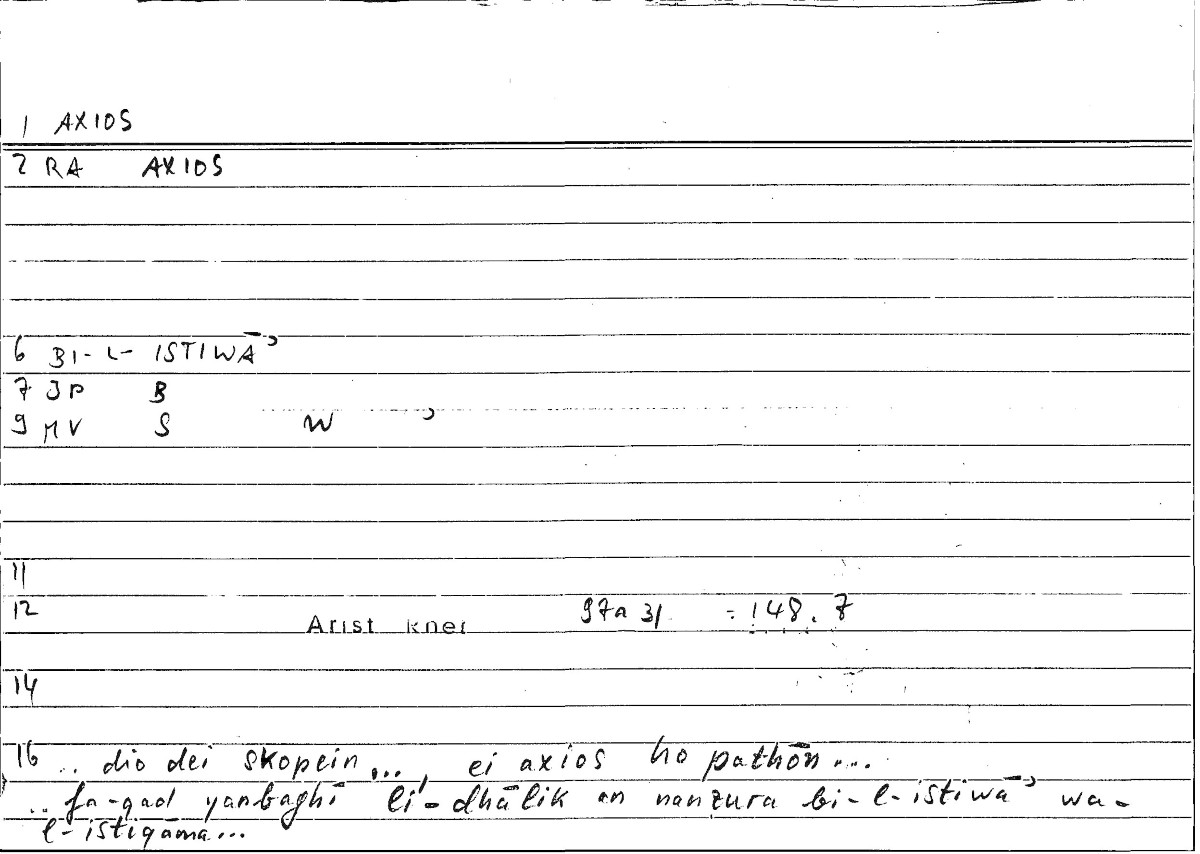 1 AXIOS
2 RA AXIOS
6 BI-L-ISTIWĀʾ
7 JP B
9 MV S W ʾ
11
12 Arist 97a 31 = 148.7
14
16 .. dio dei skopein..., ei axios ho pathōn...
.. fa-qad yanbaghī li-dhālik an nanẓura bi-l-istiwāʾ wa-
l-istiqāma...